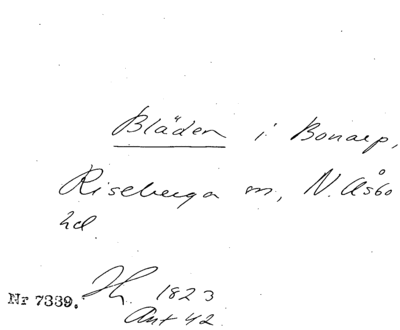 Bläden i Bonarp,
Riseberga sn, N. Åsbo
hd
Hh. 1823
Nr 7339.
Ant 42.